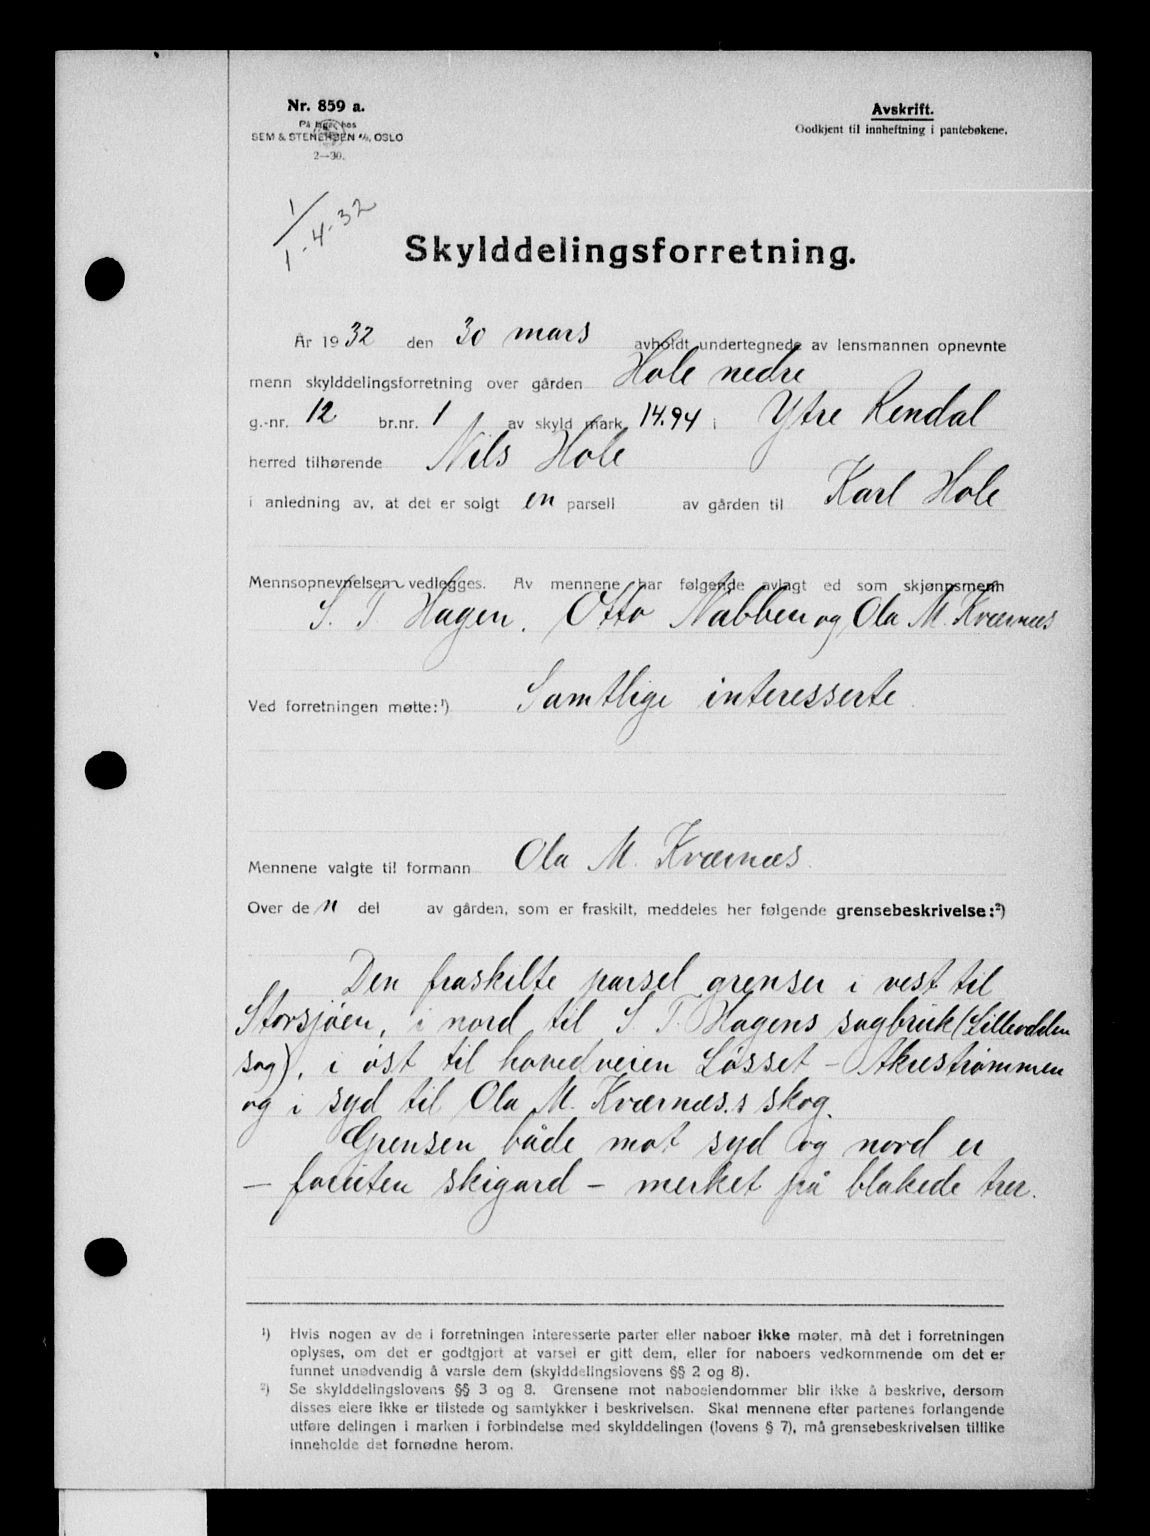 Nr. 859 a.
På lager hos
SEM & STENERSEN A/S, OSLO
2—30.
Avskrift.
Godkjent til innheftning i pantebøkene.
1/1-4-32
Skylddelingsforretning.
År 1932 den 30 mars avholdt undertegnede av lensmannen opnevnte
menn skylddelingsforretning over gården Hole nedre
g.-nr. 12 br.nr. 1 av skyld mark 14.94 i Ytre Rendal
herred tilhørende Nils Hole
i anledning av, at det er solgt en parsell av gården til Karl Hole
Mennsopnevnelsen vedlegges. Av mennene har følgende avlagt ed som skjønnsmenn
S. T. Hagen, Otto Nabben og Ola M. Kværnæs
Ved forretningen møtte:¹) Samtlige interesserte.
Mennene valgte til formann Ola M. Kværnæs.
Over den del av gården, som er fraskilt, meddeles her følgende grensebeskrivelse:²)
Den fraskilte parsel grenser i vest til
Storsjøen, i nord til S. T. Hagens sagbruk (Lillevolden
sag), i øst til hovedveien Løsset - Akrestrømmen
og i syd til Ola M. Kværnæs.s skog.
Grensen både mot syd og nord er
— foruten skigard - merket på blakede trer.
¹) Hvis nogen av de i forretningen interesserte parter eller naboer ikke møter, må det i forretningen
oplyses, om det er godtgjort at varsel er gitt dem, eller for naboers vedkommende om det er
funnet unødvendig å varsle dem (skylddelingslovens §§ 2 og 8).
²) Se skylddelingslovens §§ 3 og 8. Grensene mot naboeiendommer blir ikke å beskrive, dersom
disses eiere ikke er tilstede og samtykker i beskrivelsen. Skal mennene efter partenes forlangende
utføre delingen i marken i forbindelse med skylddelingen (lovens § 7), må grensebeskrivelsen tillike
inneholde det fornødne herom.